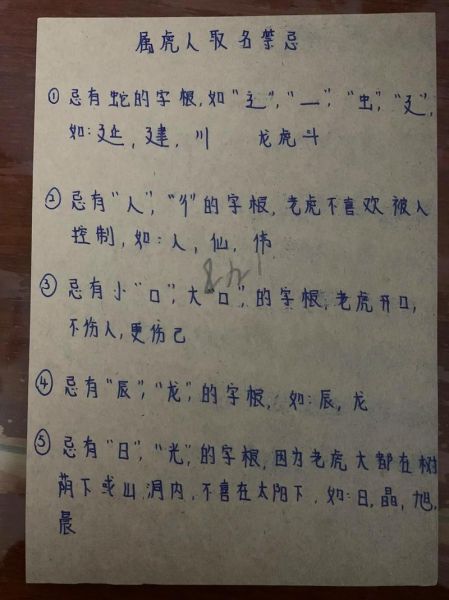 属虎人取名禁忌
① 忌有蛇的字根,如"辶","一","虫","廴",
如:延,建,川 龙虎斗
② 忌有"人","彳"的字根,老虎不喜欢被人
控制,如:人,仙,伟
③ 忌有小"口",大"口",的字根,老虎开口,
不伤人,更伤己
④ 忌有"辰","龙",的字根,如:辰,龙
⑤ 忌有"日","光",的字根,因为老虎大都在树
荫下或山洞内,不喜在太阳下.如:日,晶,旭,
晨